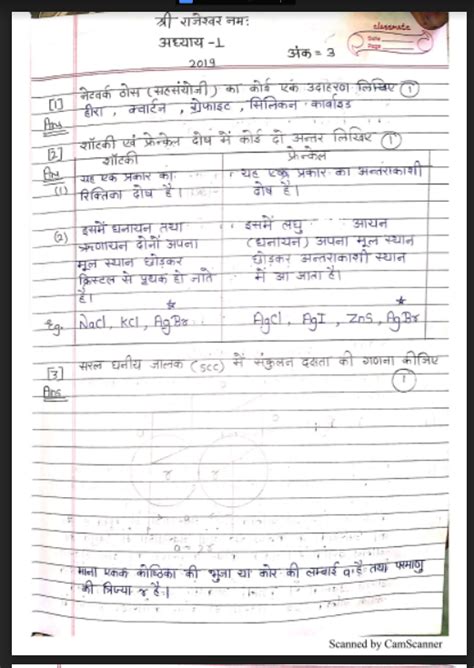 श्री राजेश्वर नमः
classmate
Date
Page
अध्याय -1
अंक = 3
2019
[1] नेटवर्क ठोस (सहसंयोजी) का कोई एक उदाहरण लिखिए (1)
Ans हीरा, क्वार्टज, ग्रेफाइट, सिलिकन कार्बाइड
[2] शॉटकी एवं फ्रेन्केल दोष में कोई दो अन्तर लिखिए (1)
Ans शॉटकी फ्रेन्केल
(1) यह एक प्रकार का यह एक प्रकार का अन्तराकाशी
रिक्तिका दोष है। दोष है।
(2) इसमें धनायन तथा इसमें लघु आयन
ऋणायन दोनों अपना (धनायन) अपना मूल स्थान
मूल स्थान छोड़कर छोड़कर अन्तराकाशी स्थान
क्रिस्टल से पृथक हो जाते में आ जाता है।
है।
Eg. NaCl, KCl, AgBr AgCl, AgI, ZnS, AgBr
[3] सरल घनीय जालक (SCC) में संकुलन दक्षता की गणना कीजिए
(1)
Ans
r r
a = 2r
माना एकक कोष्ठिका की भुजा या कोर की लम्बाई a है तथा परमाणु
की त्रिज्या r है।
Scanned by CamScanner